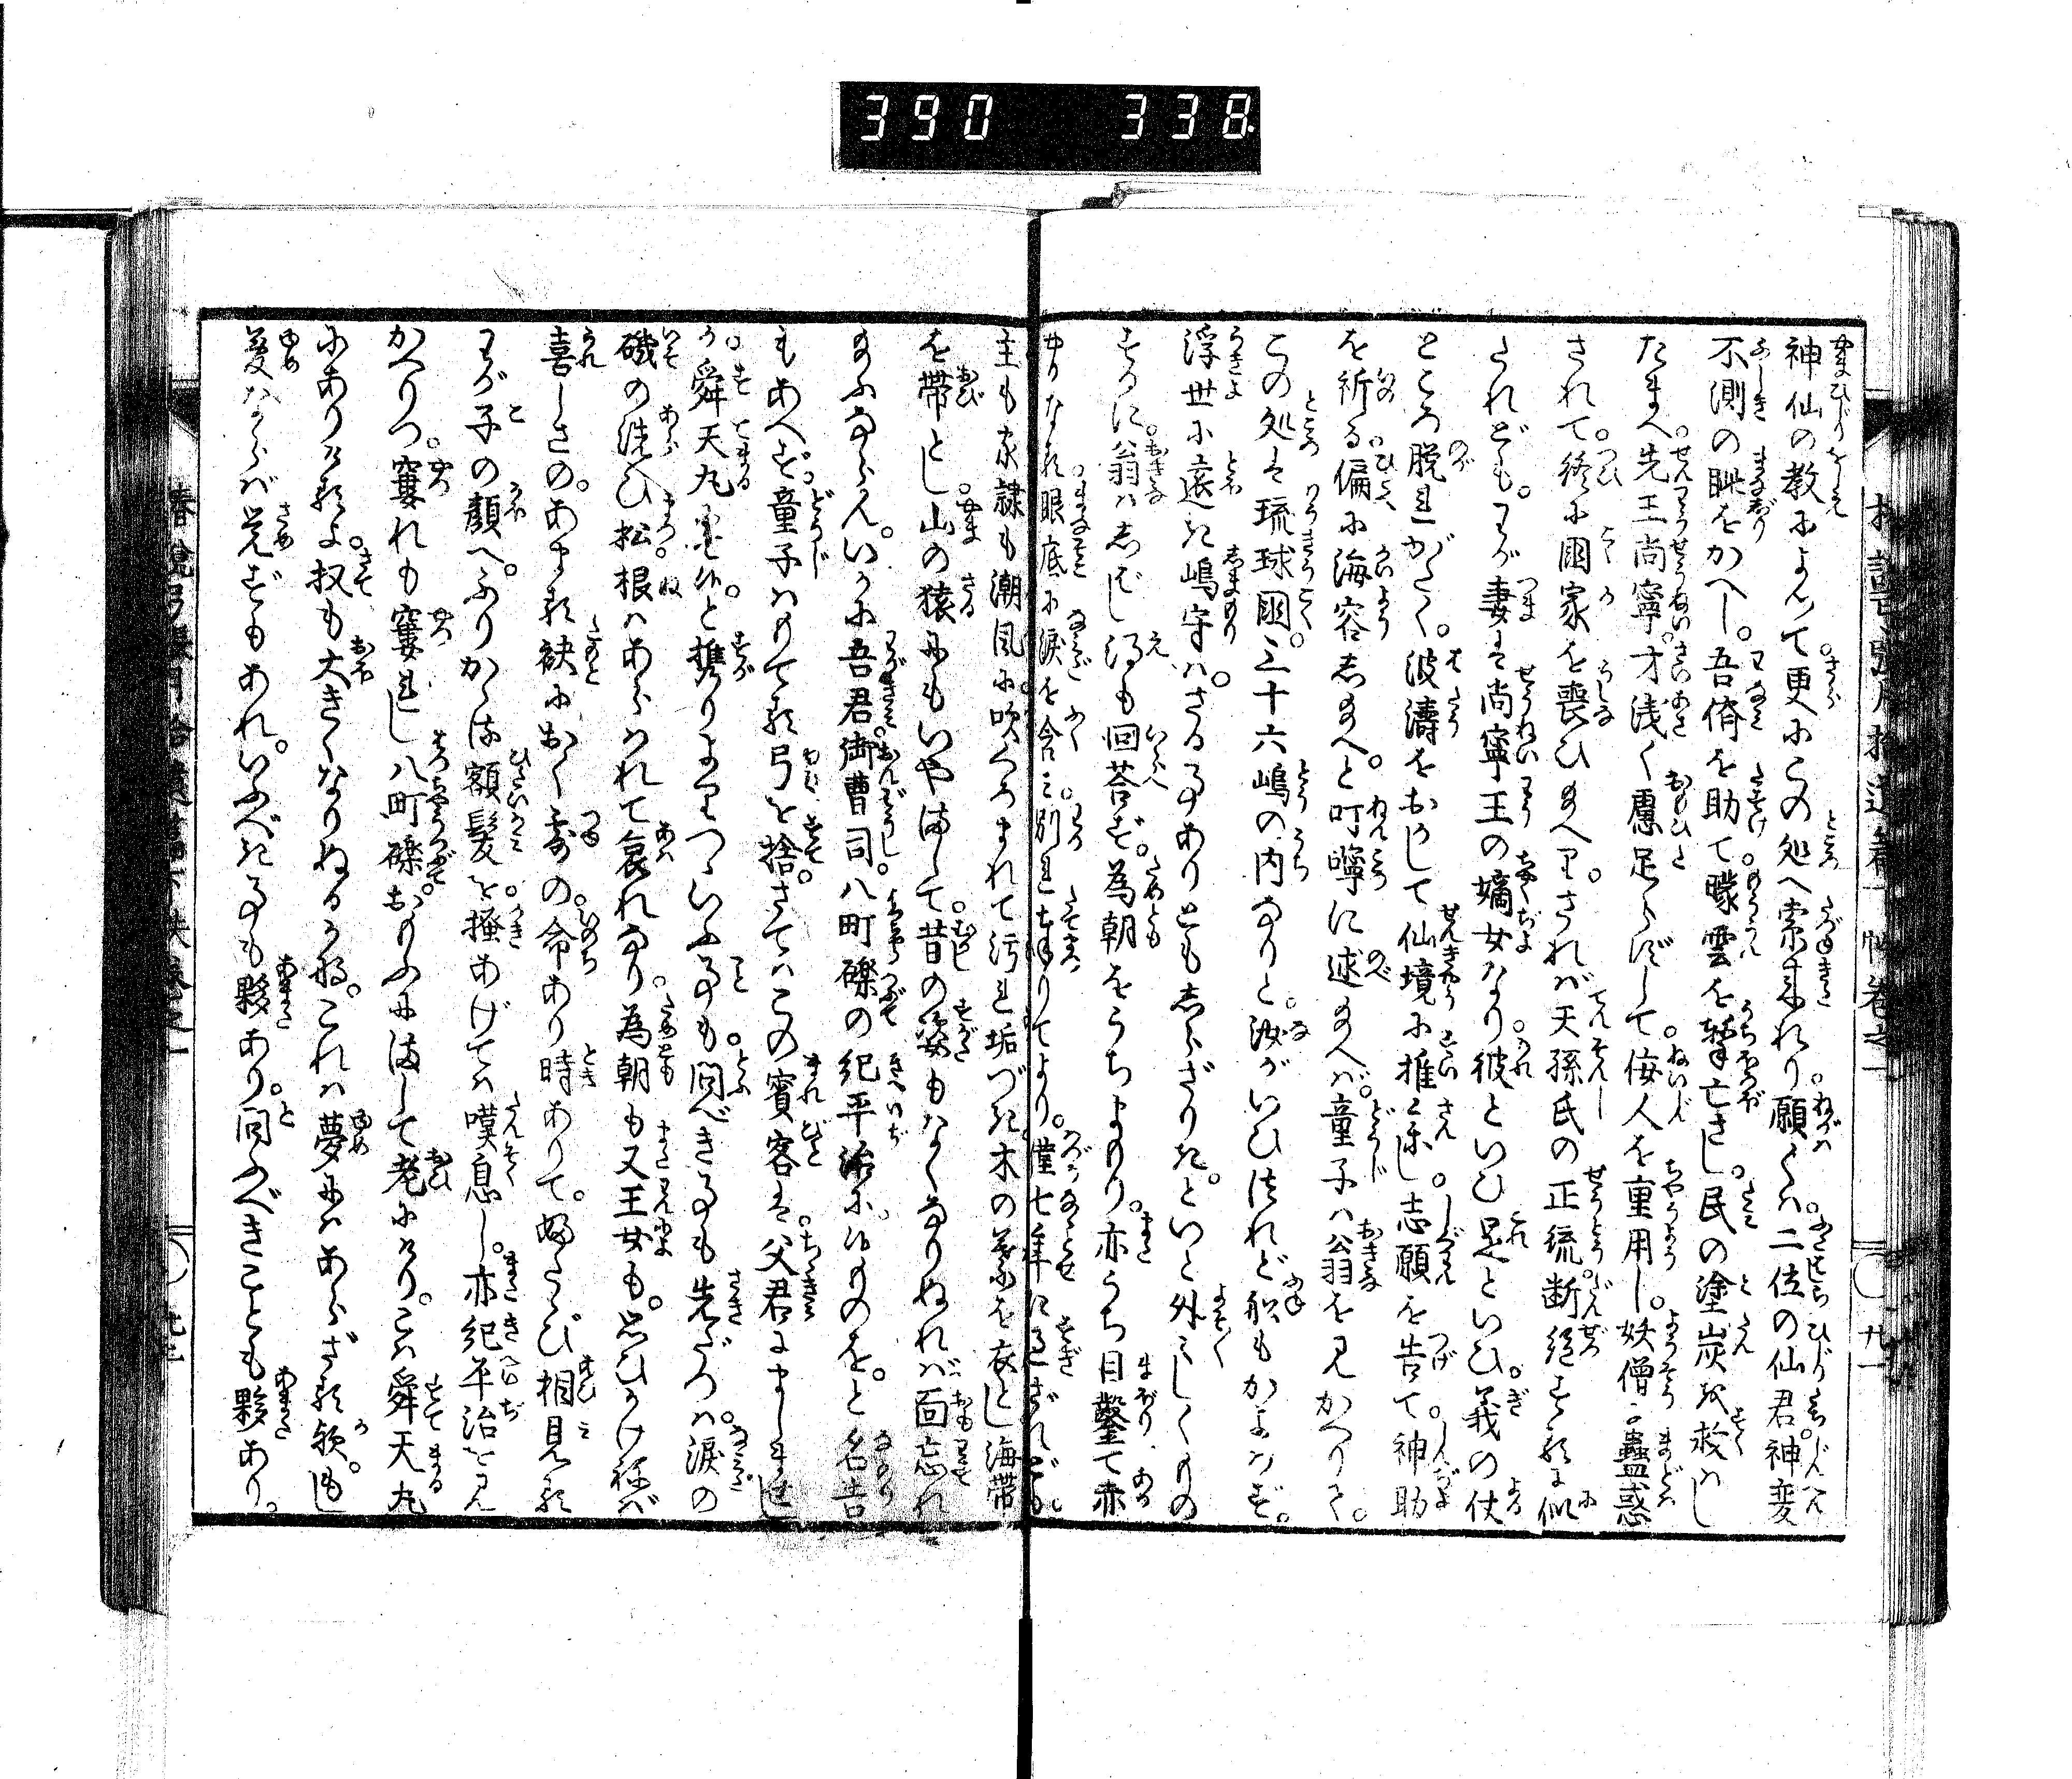 390 338
神仙の教によつて更にこの処へ索来れり願くは二位の仙君神変
不測の眦をかへし吾儕を助て曚雲を撃亡さし民の塗炭を救はし
たまへ先王尚寧才浅く慮足らずして佞人を重用し妖僧に蠱惑
されて終に国家を喪ひ給へりされば天孫氏の正統断絶するに似
たれどもわが妻は尚寧王の嫡女なり彼といひ是といひ義の仗
ところ脱れがたく波濤をおかして仙境に推参し志願を告て神助
を祈る偏に海容し給へと叮嚀に述給へば童子は翁を見かへりて
この処は琉球国三十六嶋の内なりと汝がいひつれど船もかよはず
浮世に遠き嶋守はさる事ありともしらざりきといと外々しくもの
するに翁はしばし得も回答ず為朝をうちまもり亦うち目鑿て赤
やかなる眼底に涙を含み別れ奉りてより僅七年に過ざれども
主も家隷も潮風に吹くろまれて汚れ垢づき木の葉を衣とし海帯
を帯とし山の猿にもいやまして昔の姿もなくなりぬれば面忘れ
給ふならんいかに吾君御曹司八町礫の紀平治に候ものをと名告
もあへず童子はもてる弓を捨さてはこの賓客は父君にましませし
か舜天丸に候と携りまゐらせついふ事も問べき事も先だつは涙の
磯の洗ひ松根はあらはれて哀れなり為朝も又王女も思ひかけねば
喜しさのあまる袂におく露の命あり時ありて好たび相見る
わが子の顔へふりかゝる額髪を掻あげては嘆息し亦紀平治を見
かへりつ窶れも窶れし八町礫おもふにまして老にけりこは舜天丸
にありけるよ扨も大きくなりぬるかなこれは夢にはあらざる歟もし
夢ならば覚ずもあれいふべき事も夥あり問ふべきことも夥あり